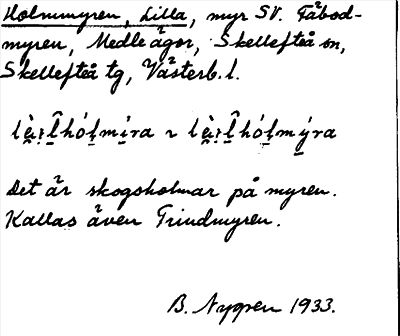 Holmmyren, Lilla, myr SV. Fåbod-
myren, Medle ägor, Skellefteå sn,
Skellefteå tg, Västerb. l.
Det är skogsholmar på myren.
Kallas även Trindmyren.
B. Nygren 1933.